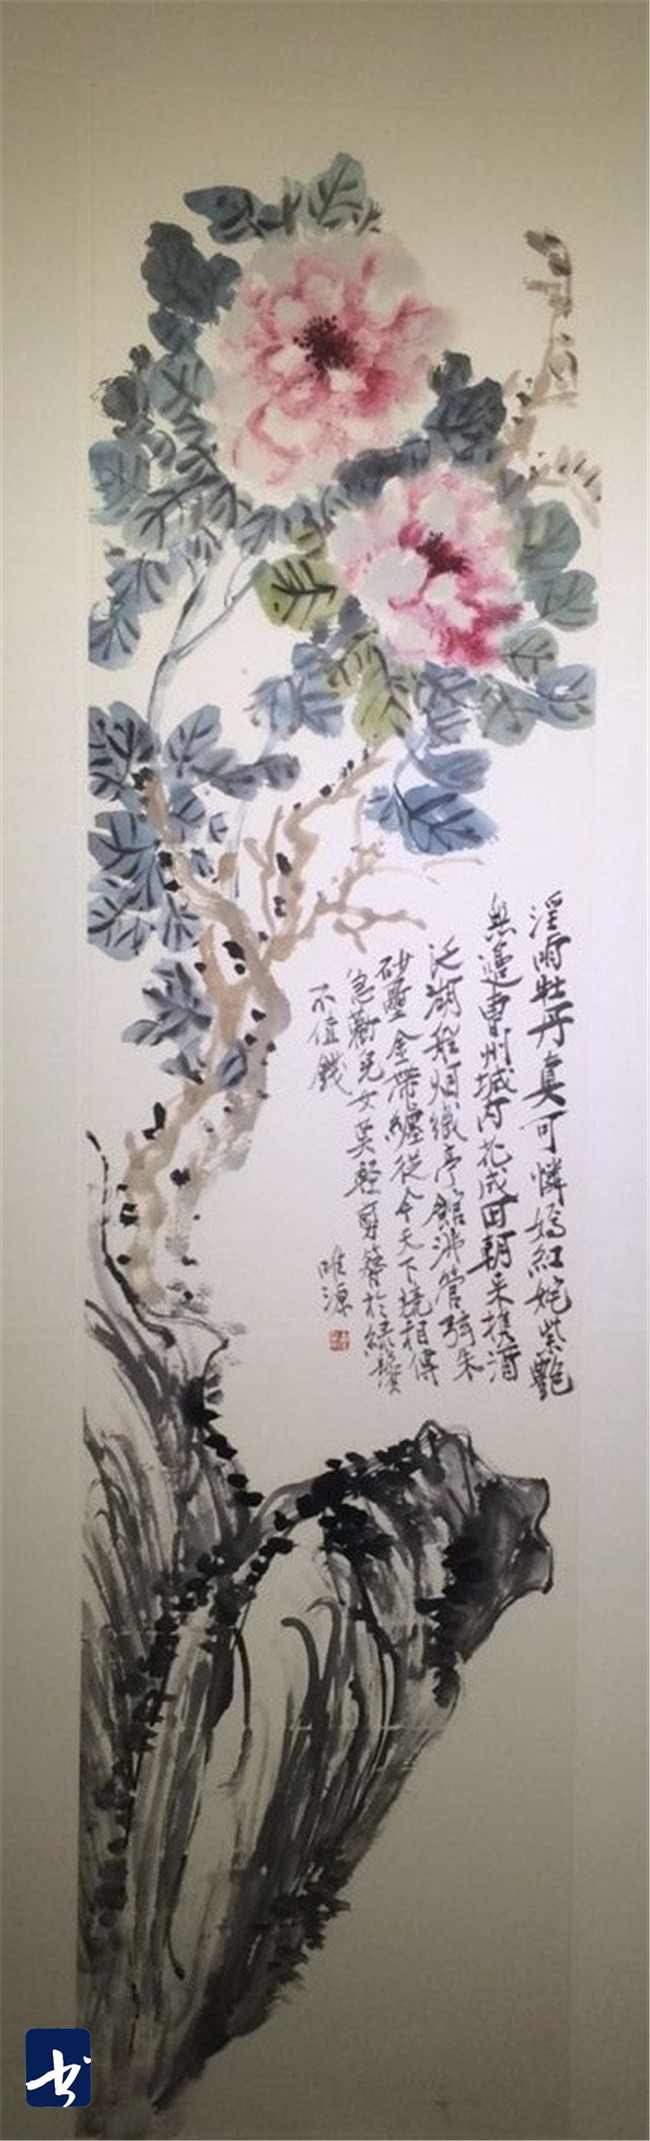 淫雨牡丹真可憐嫣紅姹紫艷
無邊曹州城內花成田朝來携酒
泛湖船烟
亭館沸管弦朱
砂壘金帶纏從今天下競相傳
急勸兒女莫輕剪簪於綠鬢
不值錢
唯源